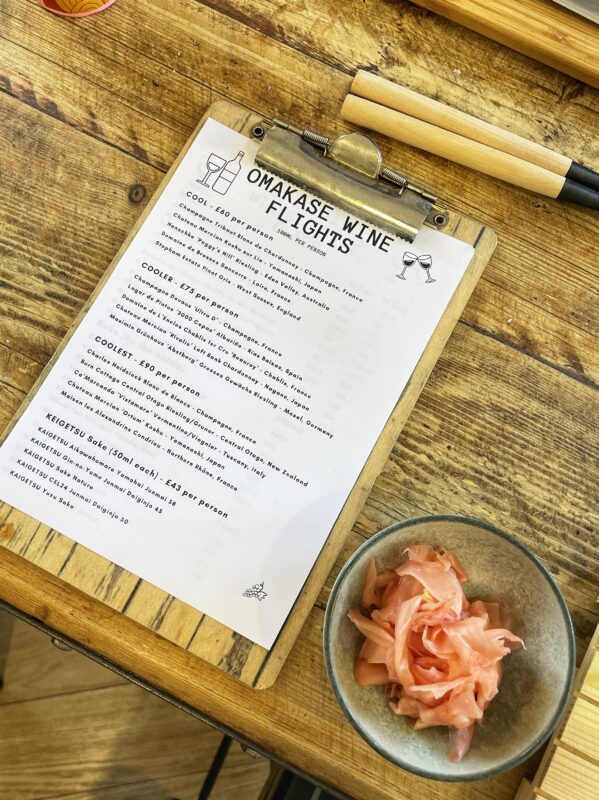 OMAKASE WINE
FLIGHTS
100ML PER PERSON
COOL - £60 per person
Champagne Tribaut Blanc de Chardonnay - Champagne, France
Chateau Mercian Koshu sur Lie - Yamanashi, Japan
Henschke 'Peggy's Hill' Riesling - Eden Valley, Australia
Domaine de Bresses Sancerre, Loire, France
Stopham Estate Pinot Gris - West Sussex, England
COOLER - £75 per person
Champagne Devaux 'Ultra D' - Champagne, France
Lagar de Pintos '3000 Cepas' Albariño - Rias Baixas, Spain
Domaine de L'Enclos Chablis 1er Cru 'Beauroy' - Chablis, France
Chateau Mercian 'Rivalis' Left Bank Chardonnay - Nagano, Japan
Maximin Grünhaus 'Abstberg' Grosses Gewächs Riesling - Mosel, Germany
COOLEST - £90 per person
Charles Heidsieck Blanc de Blancs - Champagne, France
Burn Cottage Central Otago Riesling/Gruner - Central Otago, New Zealand
Ca'Marcanda 'Vistamare' Vermentino/Viognier - Tuscany, Italy
Chateau Mercian 'Ortum' Koshu - Yamanashi, Japan
Maison les Alexandrins Condrieu - Northern Rhône, France
KEIGETSU Sake (50ml each) - £43 per person
KAIGETSU Aikawahomare Yamahai Junmai 58
KAIGETSU Gin-no-Yume Junmai Daiginjo 45
KAIGETSU Sake Nature
KAIGETSU CEL24 Junmai Daiginjo 50
KAIGETSU Yuzu Sake